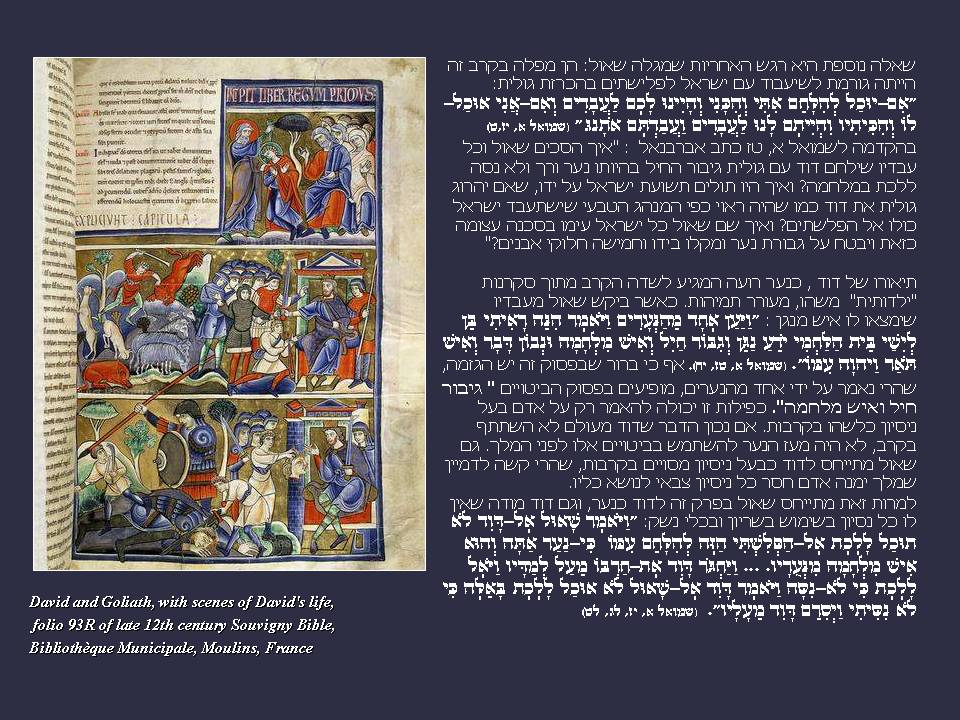 שאלה נוספת היא רגש האחריות שמגלה שאול: הן מפלה בקרב זה
הייתה גורמת לשיעבוד עם ישראל לפלישתים בהכרזת גולית:
"אִם-יוּכַל לְהִלָּחֵם אִתִּי וְהִכָּנִי וְהָיִינוּ לָכֶם לַעֲבָדִים וְאִם-אֲנִי אוּכַל-
לוֹ וְהִכִּיתִיו וִהְיִיתֶם לָנוּ לַעֲבָדִים וַעֲבַדְתֶּם אֹתָנוּ" (שמואל א, יז,ט)
בהקדמה לשמואל א, טז כתב אברבנאל : "איך הסכים שאול וכל
עבדיו שילחם דוד עם גולית גיבור החיל בהיותו נער ורך ולא נסה
ללכת במלחמה? ואיך היו תולים תשועת ישראל על ידו, שאם יהרוג
גולית את דוד כמו שהיה ראוי כפי המנהג הטבעי שישתעבד ישראל
כולו אל הפלשתים? ואיך שם שאול כל ישראל עימו בסכנה עצומה
כזאת ויבטח על גבורת נער ומקלו בידו וחמישה חלוקי אבנים?"
תיאורו של דוד , כנער רועה המגיע לשדה הקרב מתוך סקרנות
"ילדותית" משהו, מעורר תמיהות. כאשר ביקש שאול מעבדיו
שימצאו לו איש מנגן : "וַיַּעַן אֶחָד מֵהַנְּעָרִים וַיֹּאמֶר הִנֵּה רָאִיתִי בֵּן
לְיִשַׁי בֵּית הַלַּחְמִי יֹדֵעַ נַגֵּן וְגִבּוֹר חַיִל וְאִישׁ מִלְחָמָה וּנְבוֹן דָּבָר וְאִישׁ
תֹּאַר וַיהוָה עִמּוֹ". (שמואל א, טז, יח). אף כי ברור שבפסוק זה יש הגזמה,
שהרי נאמר על ידי אחד מהנערים, מופיעים בפסוק הביטויים " גיבור
חיל ואיש מלחמה". כפילות זו יכולה להאמר רק על אדם בעל
ניסיון כלשהו בקרבות. אם נכון הדבר שדוד מעולם לא השתתף
בקרב, לא היה מעז הנער להשתמש בביטויים אלו לפני המלך. גם
שאול מתייחס לדוד כבעל ניסיון מסויים בקרבות, שהרי קשה לדמיין
שמלך ימנה אדם חסר כל ניסיון צבאי לנושא כליו.
למרות זאת מתייחס שאול בפרק זה לדוד כנער, וגם דוד מודה שאין
לו כל נסיון בשימוש בשריון ובכלי נשק: "וַיֹּאמֶר שָׁאוּל אֶל-דָּוִד לֹא
תוּכַל לָלֶכֶת אֶל-הַפְּלִשְׁתִּי הַזֶּה לְהִלָּחֵם עִמּוֹ כִּי-נַעַר אַתָּה וְהוּא
אִישׁ מִלְחָמָה מִנְּעֻרָיו. ... וַיַּחְגֹּר דָּוִד אֶת-חַרְבּוֹ מֵעַל לְמַדָּיו וַיֹּאֶל
לָלֶכֶת כִּי לֹא-נִסָּה וַיֹּאמֶר דָּוִד אֶל-שָׁאוּל לֹא אוּכַל לָלֶכֶת בָּאֵלֶּה כִּי
לֹא נִסִּיתִי וַיְסִרֵם דָּוִד מֵעָלָיו". (שמואל א, יז, לג, לט)
INCIPIT LIBER REGUM PRIOVS:
EXPLICIVNT : CAPITULA :
David and Goliath, with scenes of David's life,
folio 93R of late 12th century Souvigny Bible,
Bibliothèque Municipale, Moulins, France